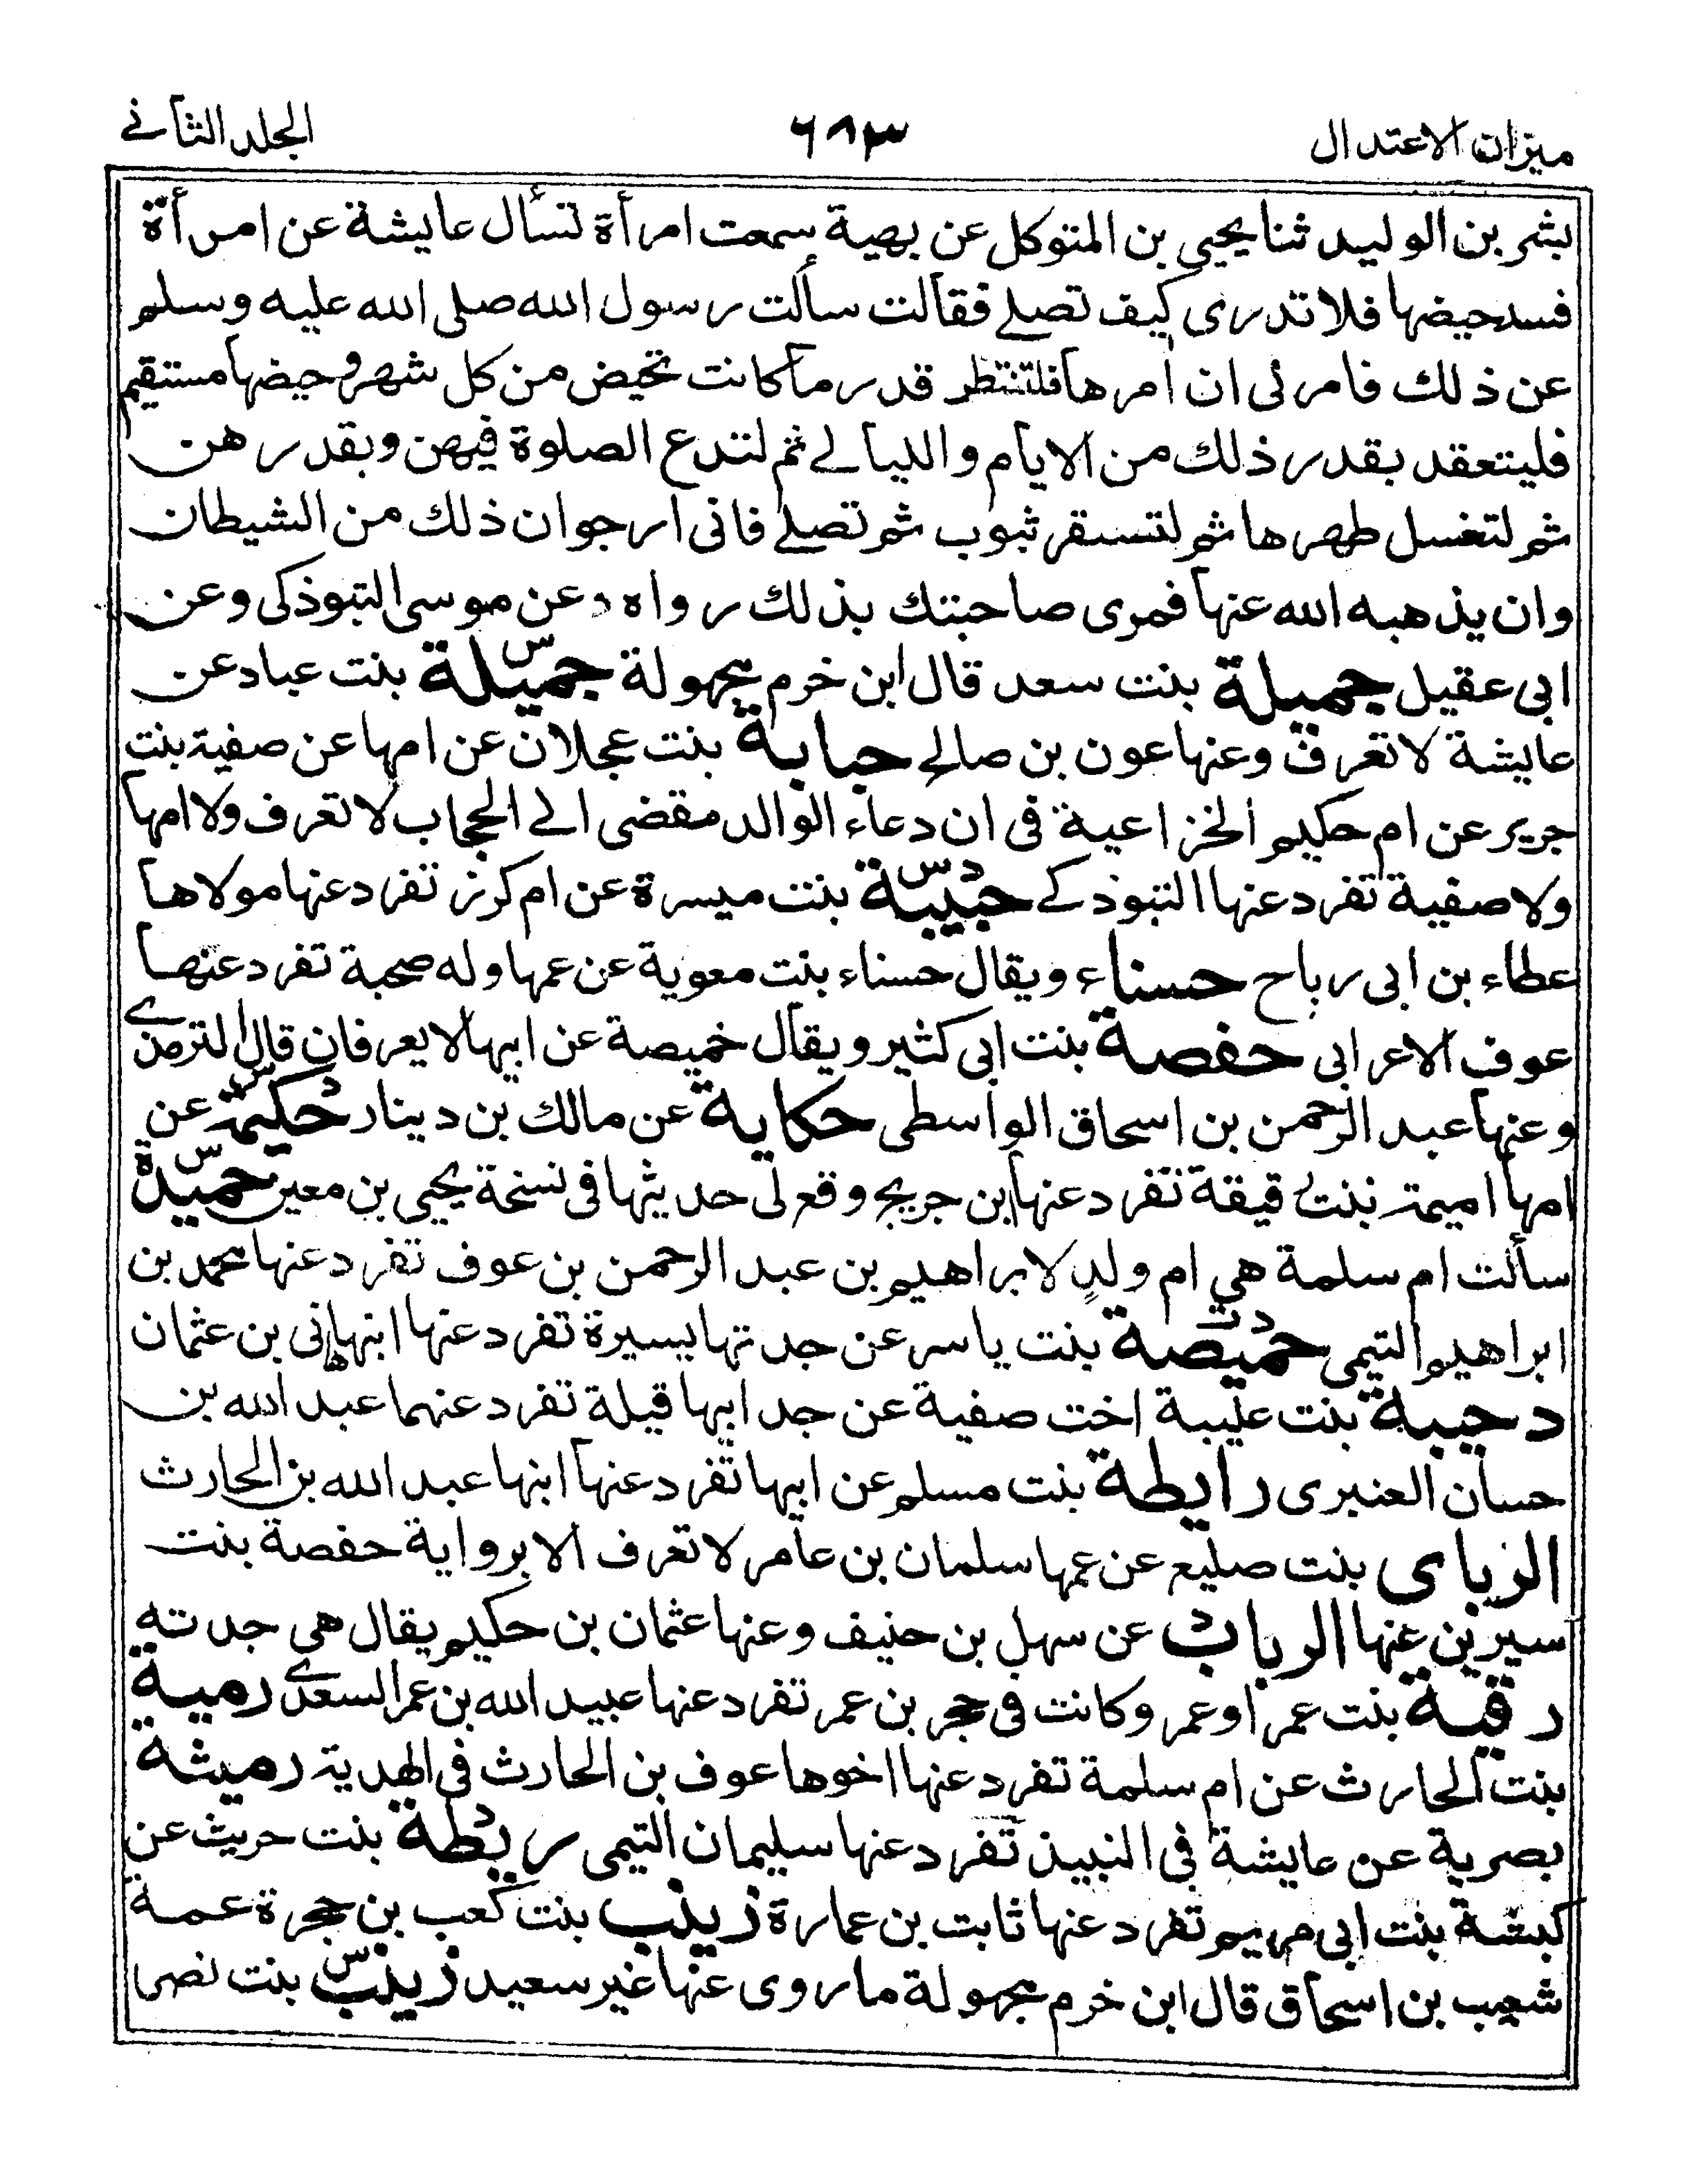 ميزان الاعتدال ٦٨٣ الجلد الثاني
بشر بن الوليد ثنا يحيى بن المتوكل عن بهية سمعت امرأة تسأل عايشة عن امرأة
فسد حيضها فلا تدرى كيف تصلے فقالت سألت رسول الله صلى الله عليه وسلم
عن ذلك فامرنى ان امرها فلتنتظر قدر ما كانت تحيض من كل شهر وحيضها مستقيم
فليتعقد بقدر ذلك من الايام والليالے ثم لتدع الصلوة فيهن وبقدرهن
ثم لتغسل طهرها ثم لتستقر ثبوب ثم تصلے فانى ارجو ان ذلك من الشيطان
وان يذهبه الله عنها فمرى صاحبتك بذلك رواه د عن موسى التبوذكى وعن
ابى عقيل جميلة بنت سعد قال ابن خرم مجهولة جميلة س بنت عباد عن
عايشة لا تعرف وعنها عون بن صالح حبابة بنت عجلان عن امها عن صفية بنت
جرير عن ام حكيم الخزاعية فى ان دعاء الوالد مقضى الے الحجاب لا تعرف ولا امها
ولا صفية تفرد عنها التبوذكے حبيبة د س بنت ميسرة عن ام كرز تفرد عنها مولاها
عطاء بن ابى رباح حسناء ويقال حسناء بنت معوية عن عمها وله صحبة تفرد عنها
عوف الاعرابى حفصة بنت ابى كثير ويقال خميصة عن ابيها لا يعرفان قال الترمذے
وعنها عبد الرحمن بن اسحاق الواسطى حكاية عن مالك بن دينار حكيمة د س عن
امها اميمة بنت رقيقة تفرد عنها ابن جريج وقع لى حديثها فى نسخة يحيى بن معين حميدة س
سألت ام سلمة هي ام ولد لابراهيم بن عبد الرحمن بن عوف تفرد عنها محمد بن
ابراهيم التيمى حميصة د ت بنت ياسر عن جدتها يسيرة تفرد عنها ابنها هانى بن عثمان
دحيبة بنت عليبة اخت صفية عن جد ابيها قيلة تفرد عنهما عبد الله بن
حسان العنبرى رايطة بنت مسلم عن ابيها تفرد عنها ابنها عبد الله بن الحارث
الزباى بنت صليع عن عمها سلمان بن عامر لا تعرف الا برواية حفصة بنت
سيرين عنها الرباب د عن سهل بن حنيف وعنها عثمان بن حكيم يقال هى جدته
رقية بنت عمر او عمر وكانت فى حجر بن عمر تفرد عنها عبيد الله بن عمر السعدے رمية
بنت الحارث عن ام سلمة تفرد عنها اخوها عوف بن الحارث فى الهدية رميثة
بصرية عن عايشة فى النبيذ تفرد عنها سليمان التيمى ريطة د بنت حريث عن
كبشة بنت ابى مريم تفرد عنها ثابت بن عمارة زينب بنت كعب بن عجرة عمة
شعيب بن اسحاق قال ابن خرم مجهولة ما روى عنها غير سعيد زينب س بنت نصر